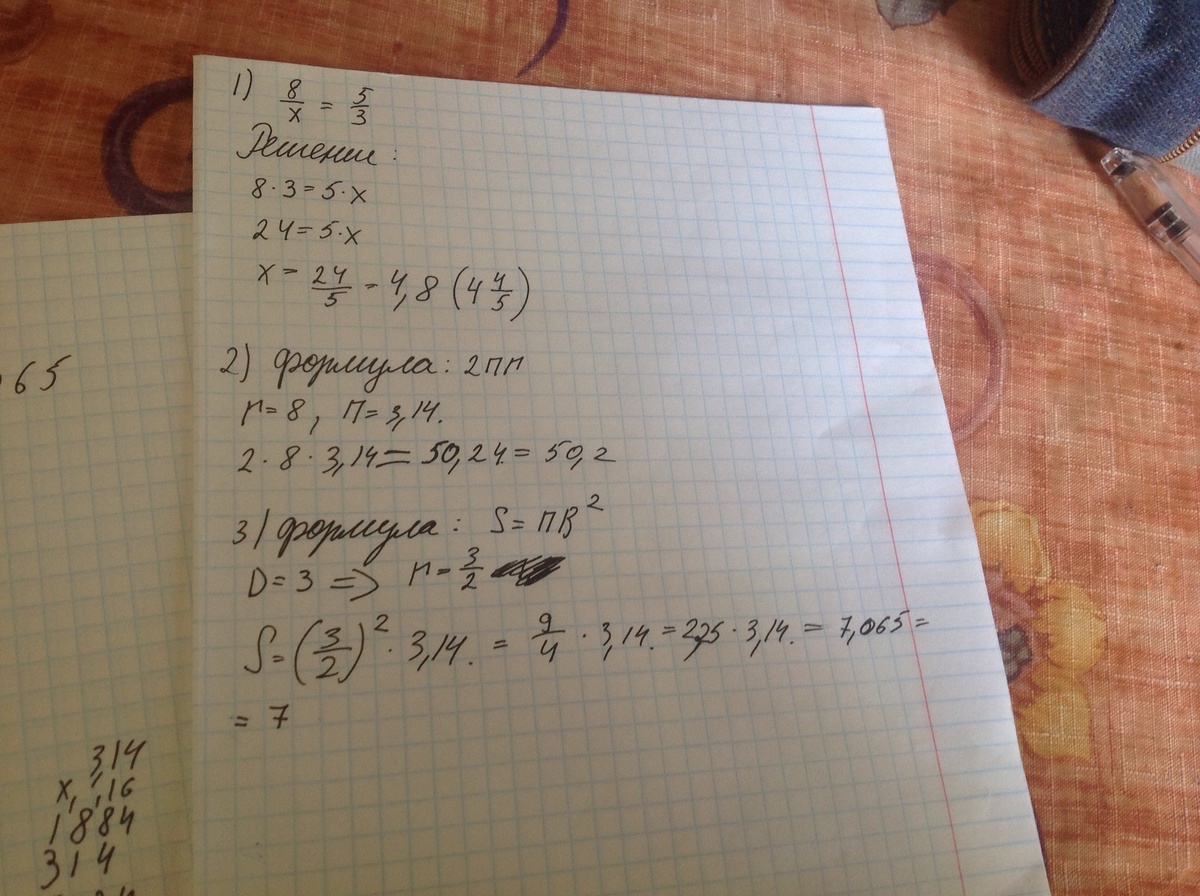 1) 8/x = 5/3
Решение:
8·3=5·x
24=5·x
x= 24/5 = 4,8 (4 4/5)
2) формула: 2πr
r=8, π=3,14.
2·8·3,14=50,24=50,2
3) формула: S=πR²
D=3 => r=3/2
S=(3/2)²·3,14.= 9/4·3,14.=2,25·3,14.=7,065=
=7
65
3,14
x 16
1884
314